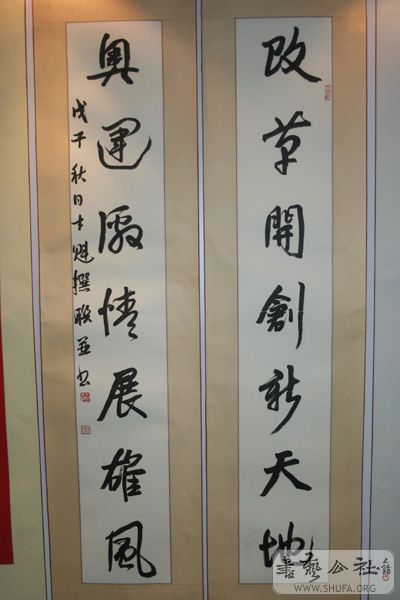 改革開創新天地
奥運激情展雄風
戊子秋日士魁撰联並书
書藝公社
WWW.SHUFA.ORG